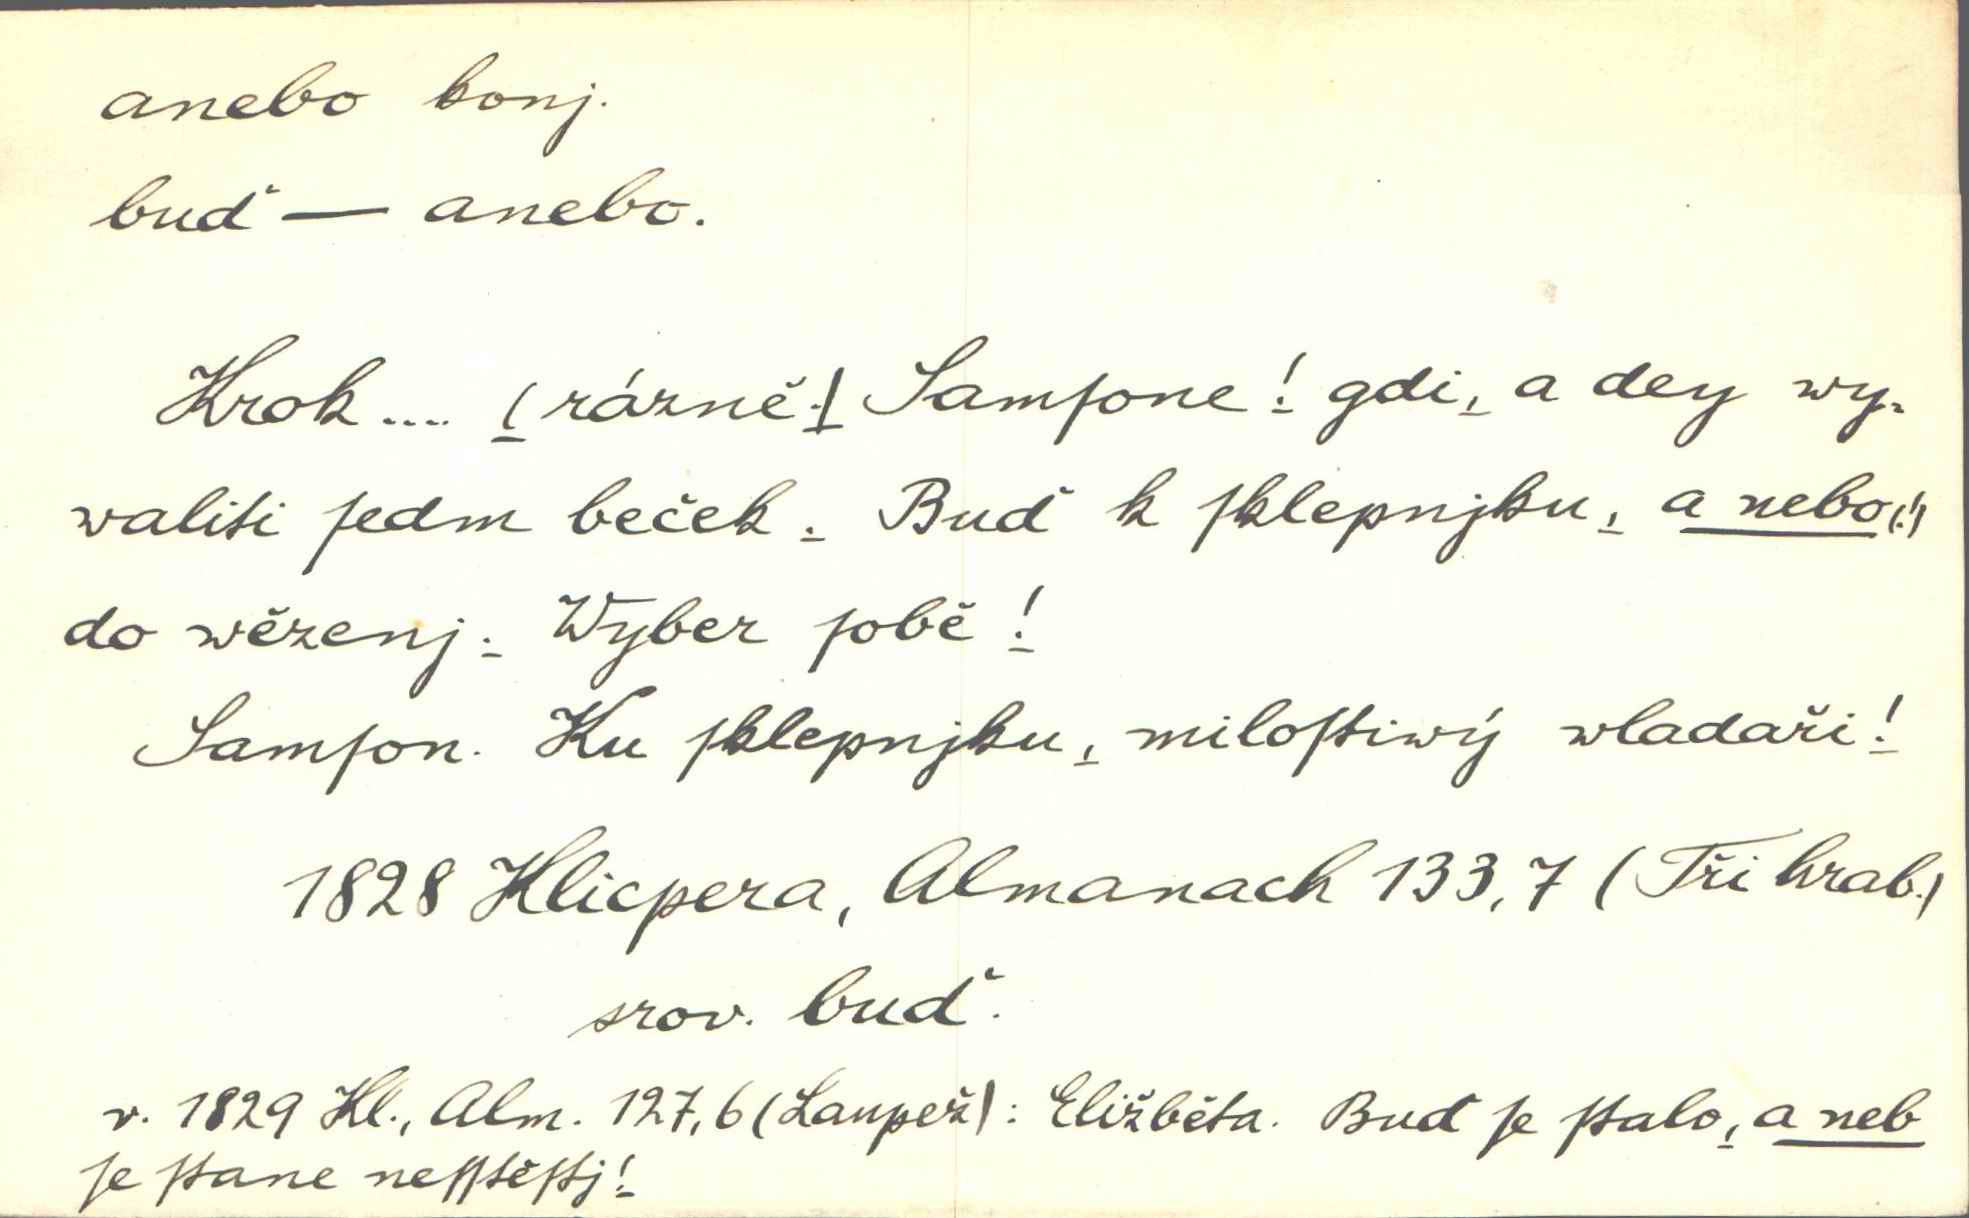 anebo konj.
buď — anebo.
Krok .... (rázně.) Samſone! gdi, a dey wy-
waliti ſedm beček. Buď k ſklepnjku, a nebo (!)
do wězenj. Wyber ſobě!
Samſon. Ku ſklepnjku, miloſtiwý wladaři!
1828 Klicpera, Almanach 133,7 (Tři hrab.)
srov. buď.
v. 1829 Kl., Alm. 127,6 (Laupež): Eližběta. Buď ſe ſtalo, a neb
ſe ſtane neſſtěſtj!